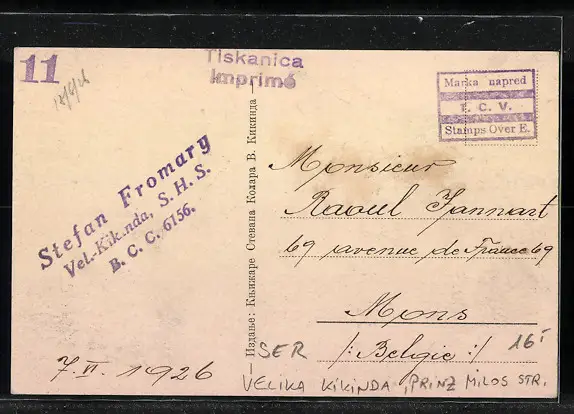 11
Tiskanica
Imprimé
Marka napred
T. C. V.
Stamps Over E.
Stefan Fromary
Vel.-Kikinda, S. H. S.
B. C. C. 6156.
— Издање: Књижаре Стевана Колара В. Кикинда
Monsieur
Raoul Jannart
69 avenue de France 69
Mons
/: Belgie :/
7. II. 1926
SER
16
VELIKA KIKINDA, PRINZ MILOS STR.